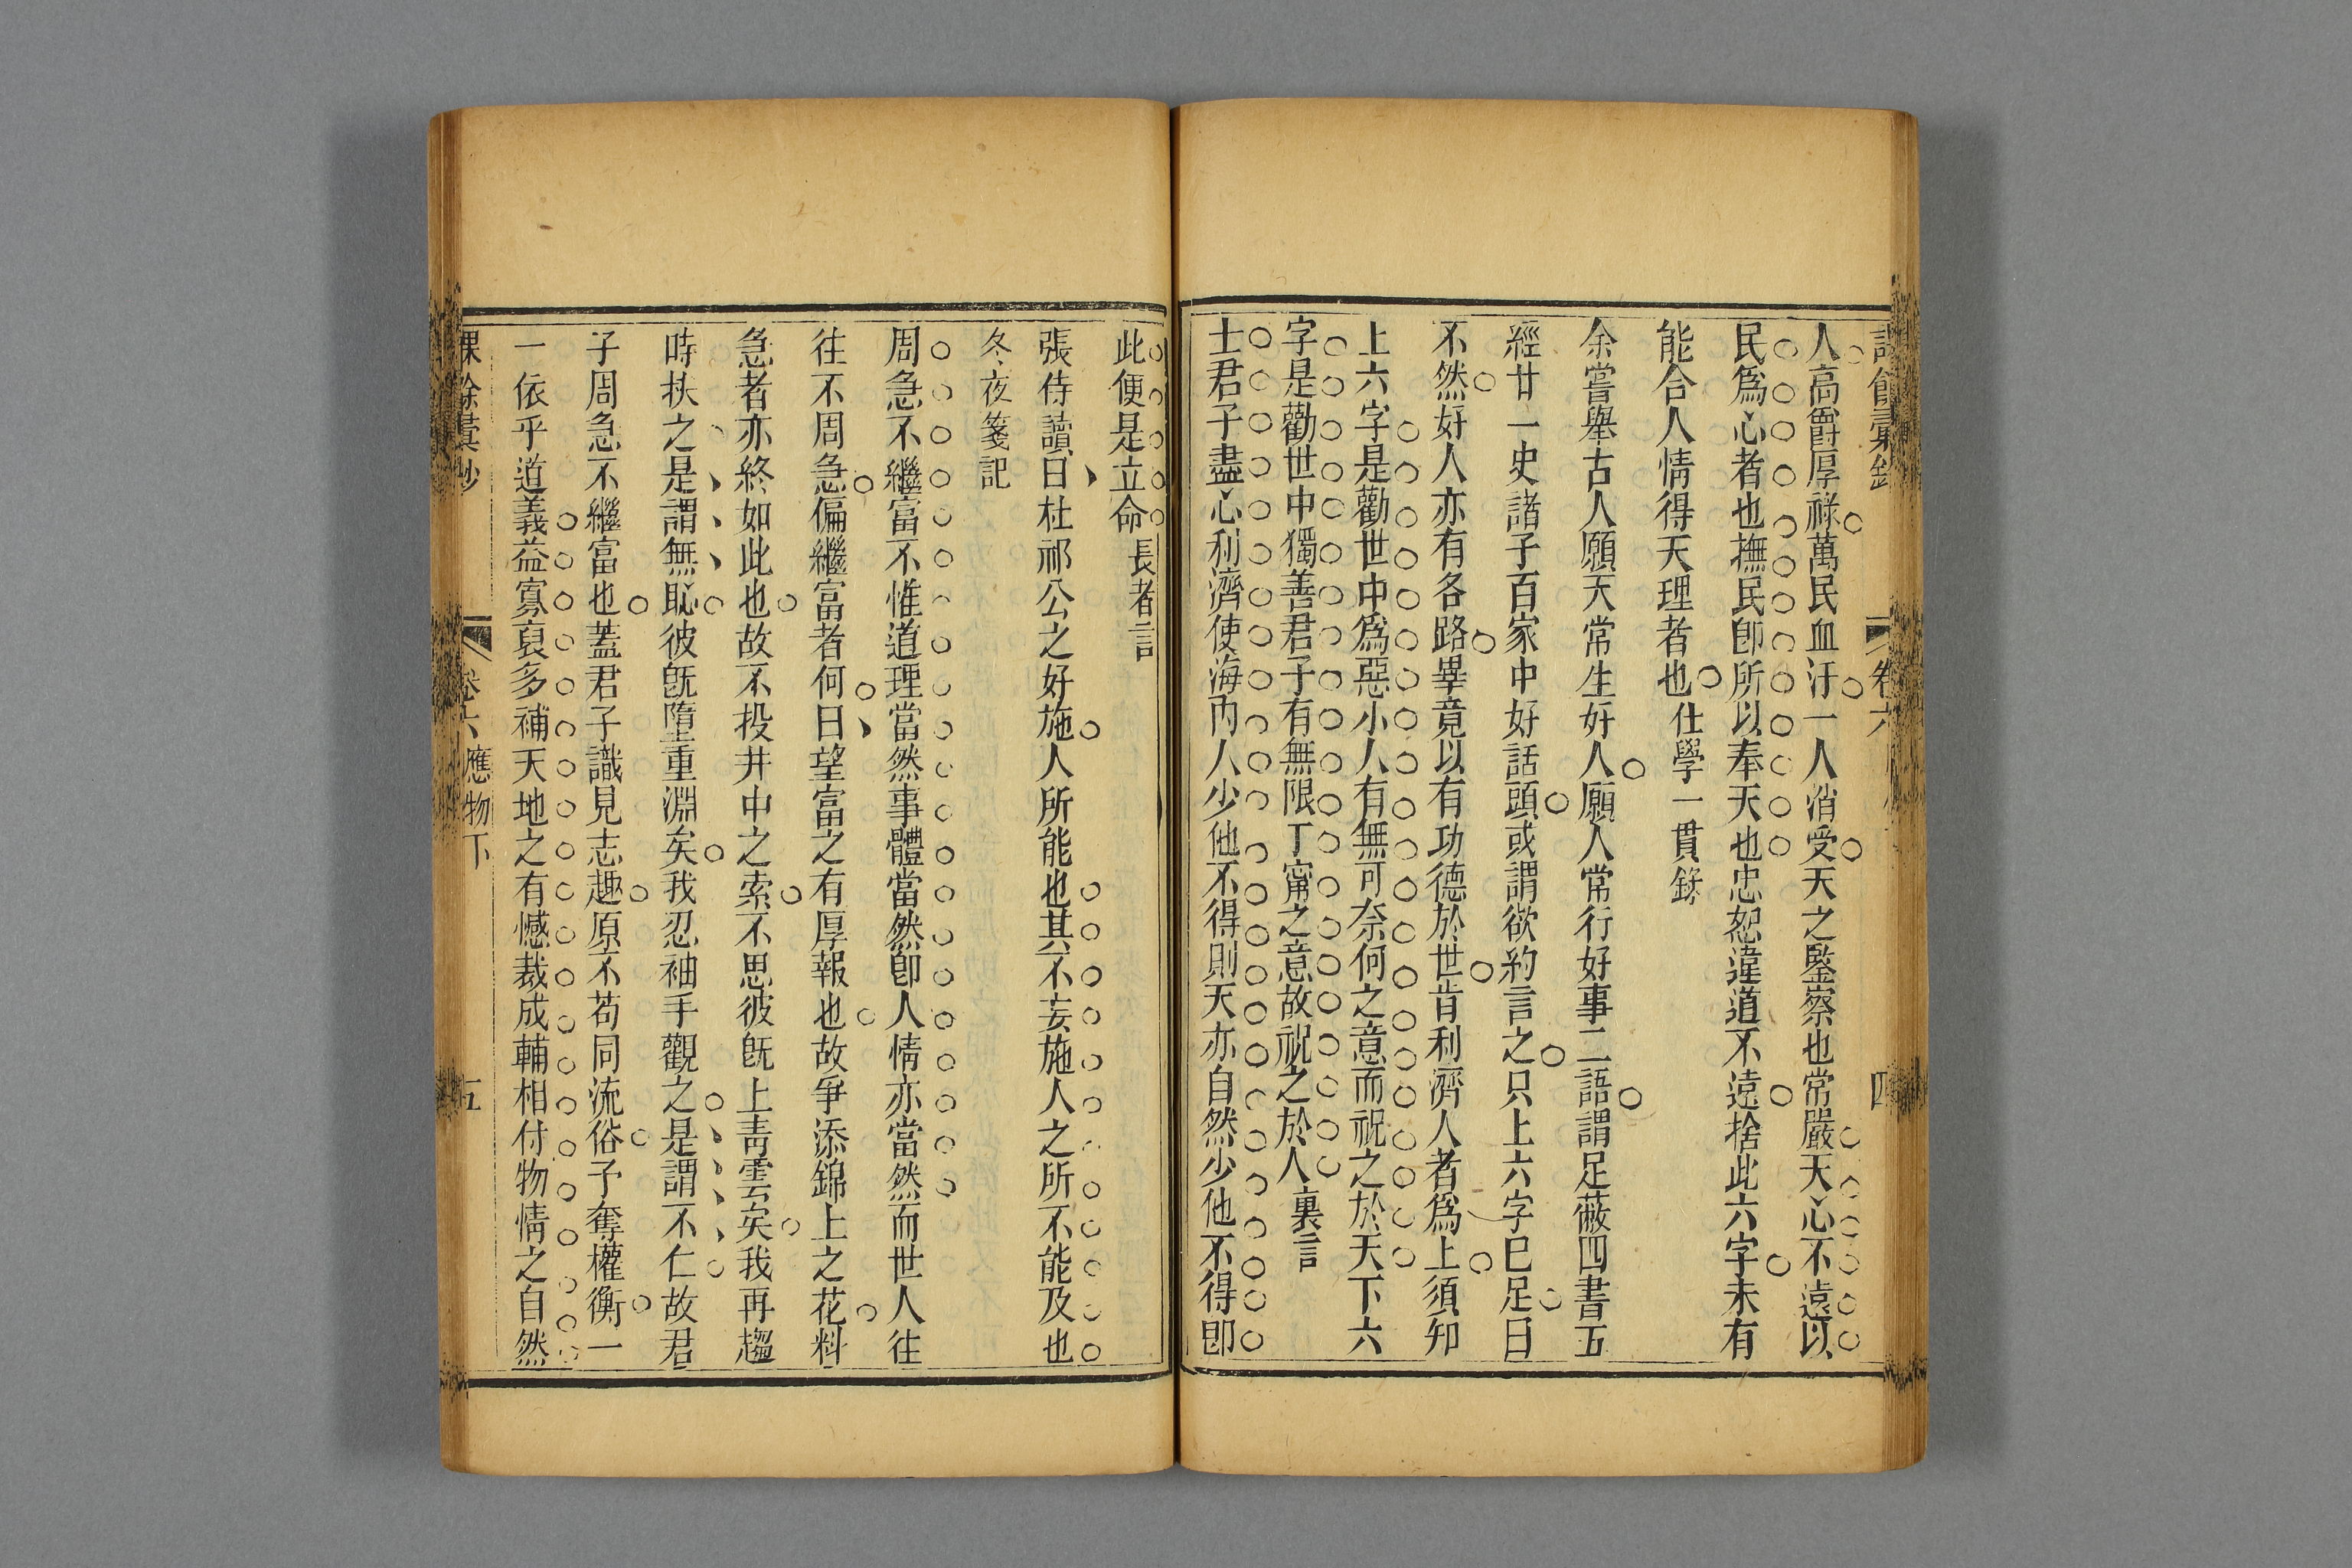 課餘彙鈔 卷六 四
人高爵厚祿萬民血汙一人消受天之鑒察也常嚴天心不遠以
民爲心者也撫民卽所以奉天也忠恕違道不遠捨此六字未有
能合人情得天理者也仕學一貫錄
余嘗舉古人願天常生好人願人常行好事二語謂足蔽四書五
經廿一史諸子百家中好話頭或謂欲約言之只上六字已足曰
不然好人亦有各路畢竟以有功德於世肯利濟人者爲上須知
上六字是勸世中爲惡小人有無可奈何之意而祝之於天下六
字是勸世中獨善君子有無限丁甯之意故祝之於人裏言
士君子盡心利濟使海內人少他不得則天亦自然少他不得卽
此便是立命長者言
張侍讀曰杜祁公之好施人所能也其不妄施人之所不能及也
冬夜箋記
周急不繼富不惟道理當然事體當然卽人情亦當然而世人往
往不周急偏繼富者何曰望富之有厚報也故爭添錦上之花料
急者亦終如此也故不投井中之索不思彼旣上靑雲矣我再趨
時扶之是謂無恥彼旣墮重淵矣我忍袖手觀之是謂不仁故君
子周急不繼富也蓋君子識見志趣原不苟同流俗予奪權衡一
一依乎道義益寡裒多補天地之有憾裁成輔相付物情之自然
課餘彙鈔 卷六 應物下 五